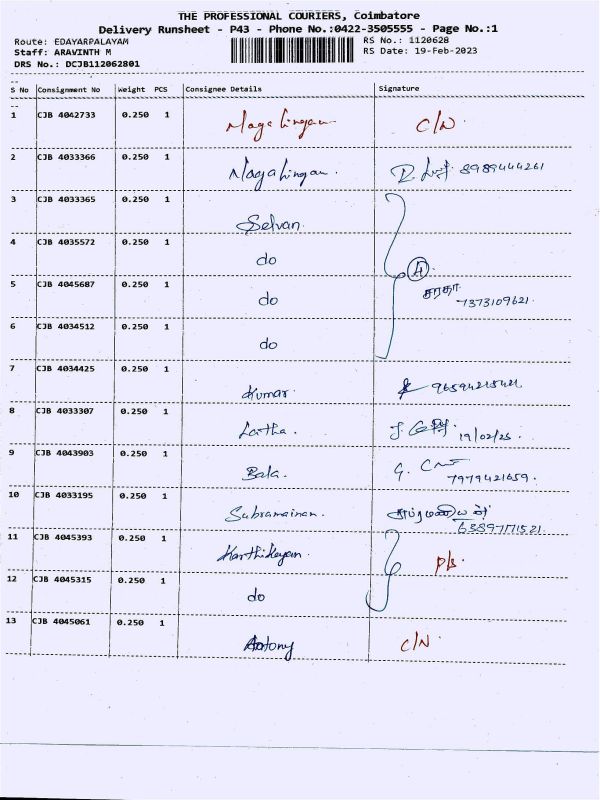 THE PROFESSIONAL COURIERS, Coimbatore
Delivery Runsheet - P43 - Phone No.:0422-3505555 - Page No.:1
Route: EDAYARPALAYAM RS No.: 1120628
Staff: ARAVINTH M RS Date: 19-Feb-2023
DRS No.: DCJB112062801
S No Consignment No Weight PCS Consignee Details Signature
1 CJB 4042733 0.250 1 Nagalingam C/N
2 CJB 4033366 0.250 1 Nagalingam. 8989444261
3 CJB 4033365 0.250 1 Selvan
4 CJB 4035572 0.250 1 do 4
5 CJB 4045687 0.250 1 do சரதா
7373109621.
6 CJB 4034512 0.250 1 do
7 CJB 4034425 0.250 1 Kumar 9659421542
8 CJB 4033307 0.250 1 Latha. 19/02/23.
9 CJB 4043903 0.250 1 Bala. G.
7979421659.
10 CJB 4033195 0.250 1 Subramainan. சுப்ரமணியன்
6389771521
11 CJB 4045393 0.250 1 Karthikeyan.
12 CJB 4045315 0.250 1 do
13 CJB 4045061 0.250 1 Antony C/N